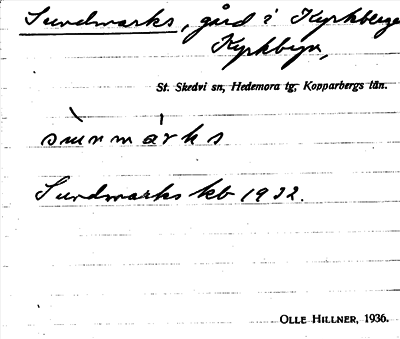 Sundmarks, gård i Kyrkberge
Kyrkbyn,
St. Skedvi sn, Hedemora tg, Kopparbergs län.
sùnmárks
Sundmarks kb 1932.
OLLE HILLNER, 1936.